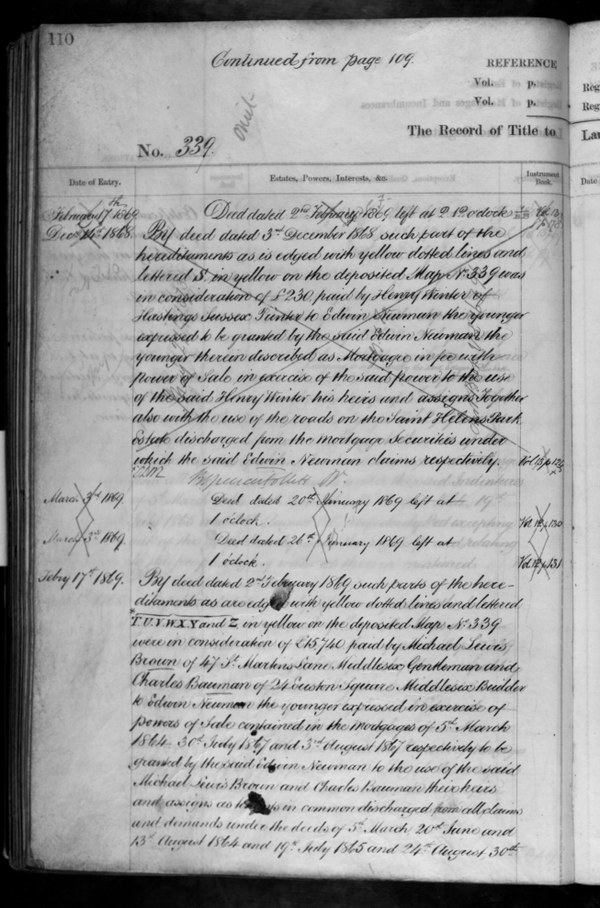 110
Continued from page 109.
REFERENCE
Vol. p.
Vol. p.
Omit
The Record of Title to
No. 339.
Reg
Reg
Lan
Date of Entry.
Estates, Powers, Interests, &c.
Instrument Book.
Date of
February 17th 1869
Deed dated 2nd February 1869 left at 2.1 o'clock
Decr 14th 1868.
By deed dated 3rd December 1868 such part of the
hereditaments as is edged with yellow dotted lines and
lettered S. in yellow on the deposited Map No. 339 was
in consideration of £230 paid by Henry Winter of
Hastings Sussex to Edwin Newman the younger
expressed to be granted by the said Edwin Newman the
younger therein described as Mortgagee in fee with
power of Sale in exercise of the said power to the use
of the said Henry Winter his heirs and assigns Together
also with the use of the roads on the Saint Helens Park
Estate discharged from the mortgage Securities under
which the said Edwin Newman claims respectively.
March 3rd 1869
Deed dated 20th January 1869 left at
1 o'clock.
Vol. 12 p 130
March 3rd 1869
Deed dated 26th February 1869 left at
1 o'clock.
Vol 12 p 131
Febry 17th 1869.
By deed dated 2nd February 1869 such parts of the here-
ditaments as are edged with yellow dotted lines and lettered
T. U. V. W. X. Y and Z in yellow on the deposited Map No. 339
were in consideration of £15740 paid by Michael Lewis
Brown of 47 St. Martins Lane Middlesex Gentleman and
Charles Bauman of 24 Euston Square Middlesex Builder
to Edwin Newman the younger expressed in exercise of
powers of Sale contained in the mortgages of 5th March
1864. 30th July 1867 and 3rd August 1867 respectively to be
granted by the said Edwin Newman to the use of the said
Michael Lewis Brown and Charles Bauman their heirs
and assigns as in common discharged from all claims
and demands under the deeds of 5th March, 20th June and
13th August 1864 and 19th July 1865 and 24th August 30th